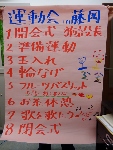 運動会 in 藤岡
1 開会式
2 準備運動
3 玉入れ
4 輪なげ
5 フルーツバスケット
6 お茶休憩
7 歌
8 閉会式